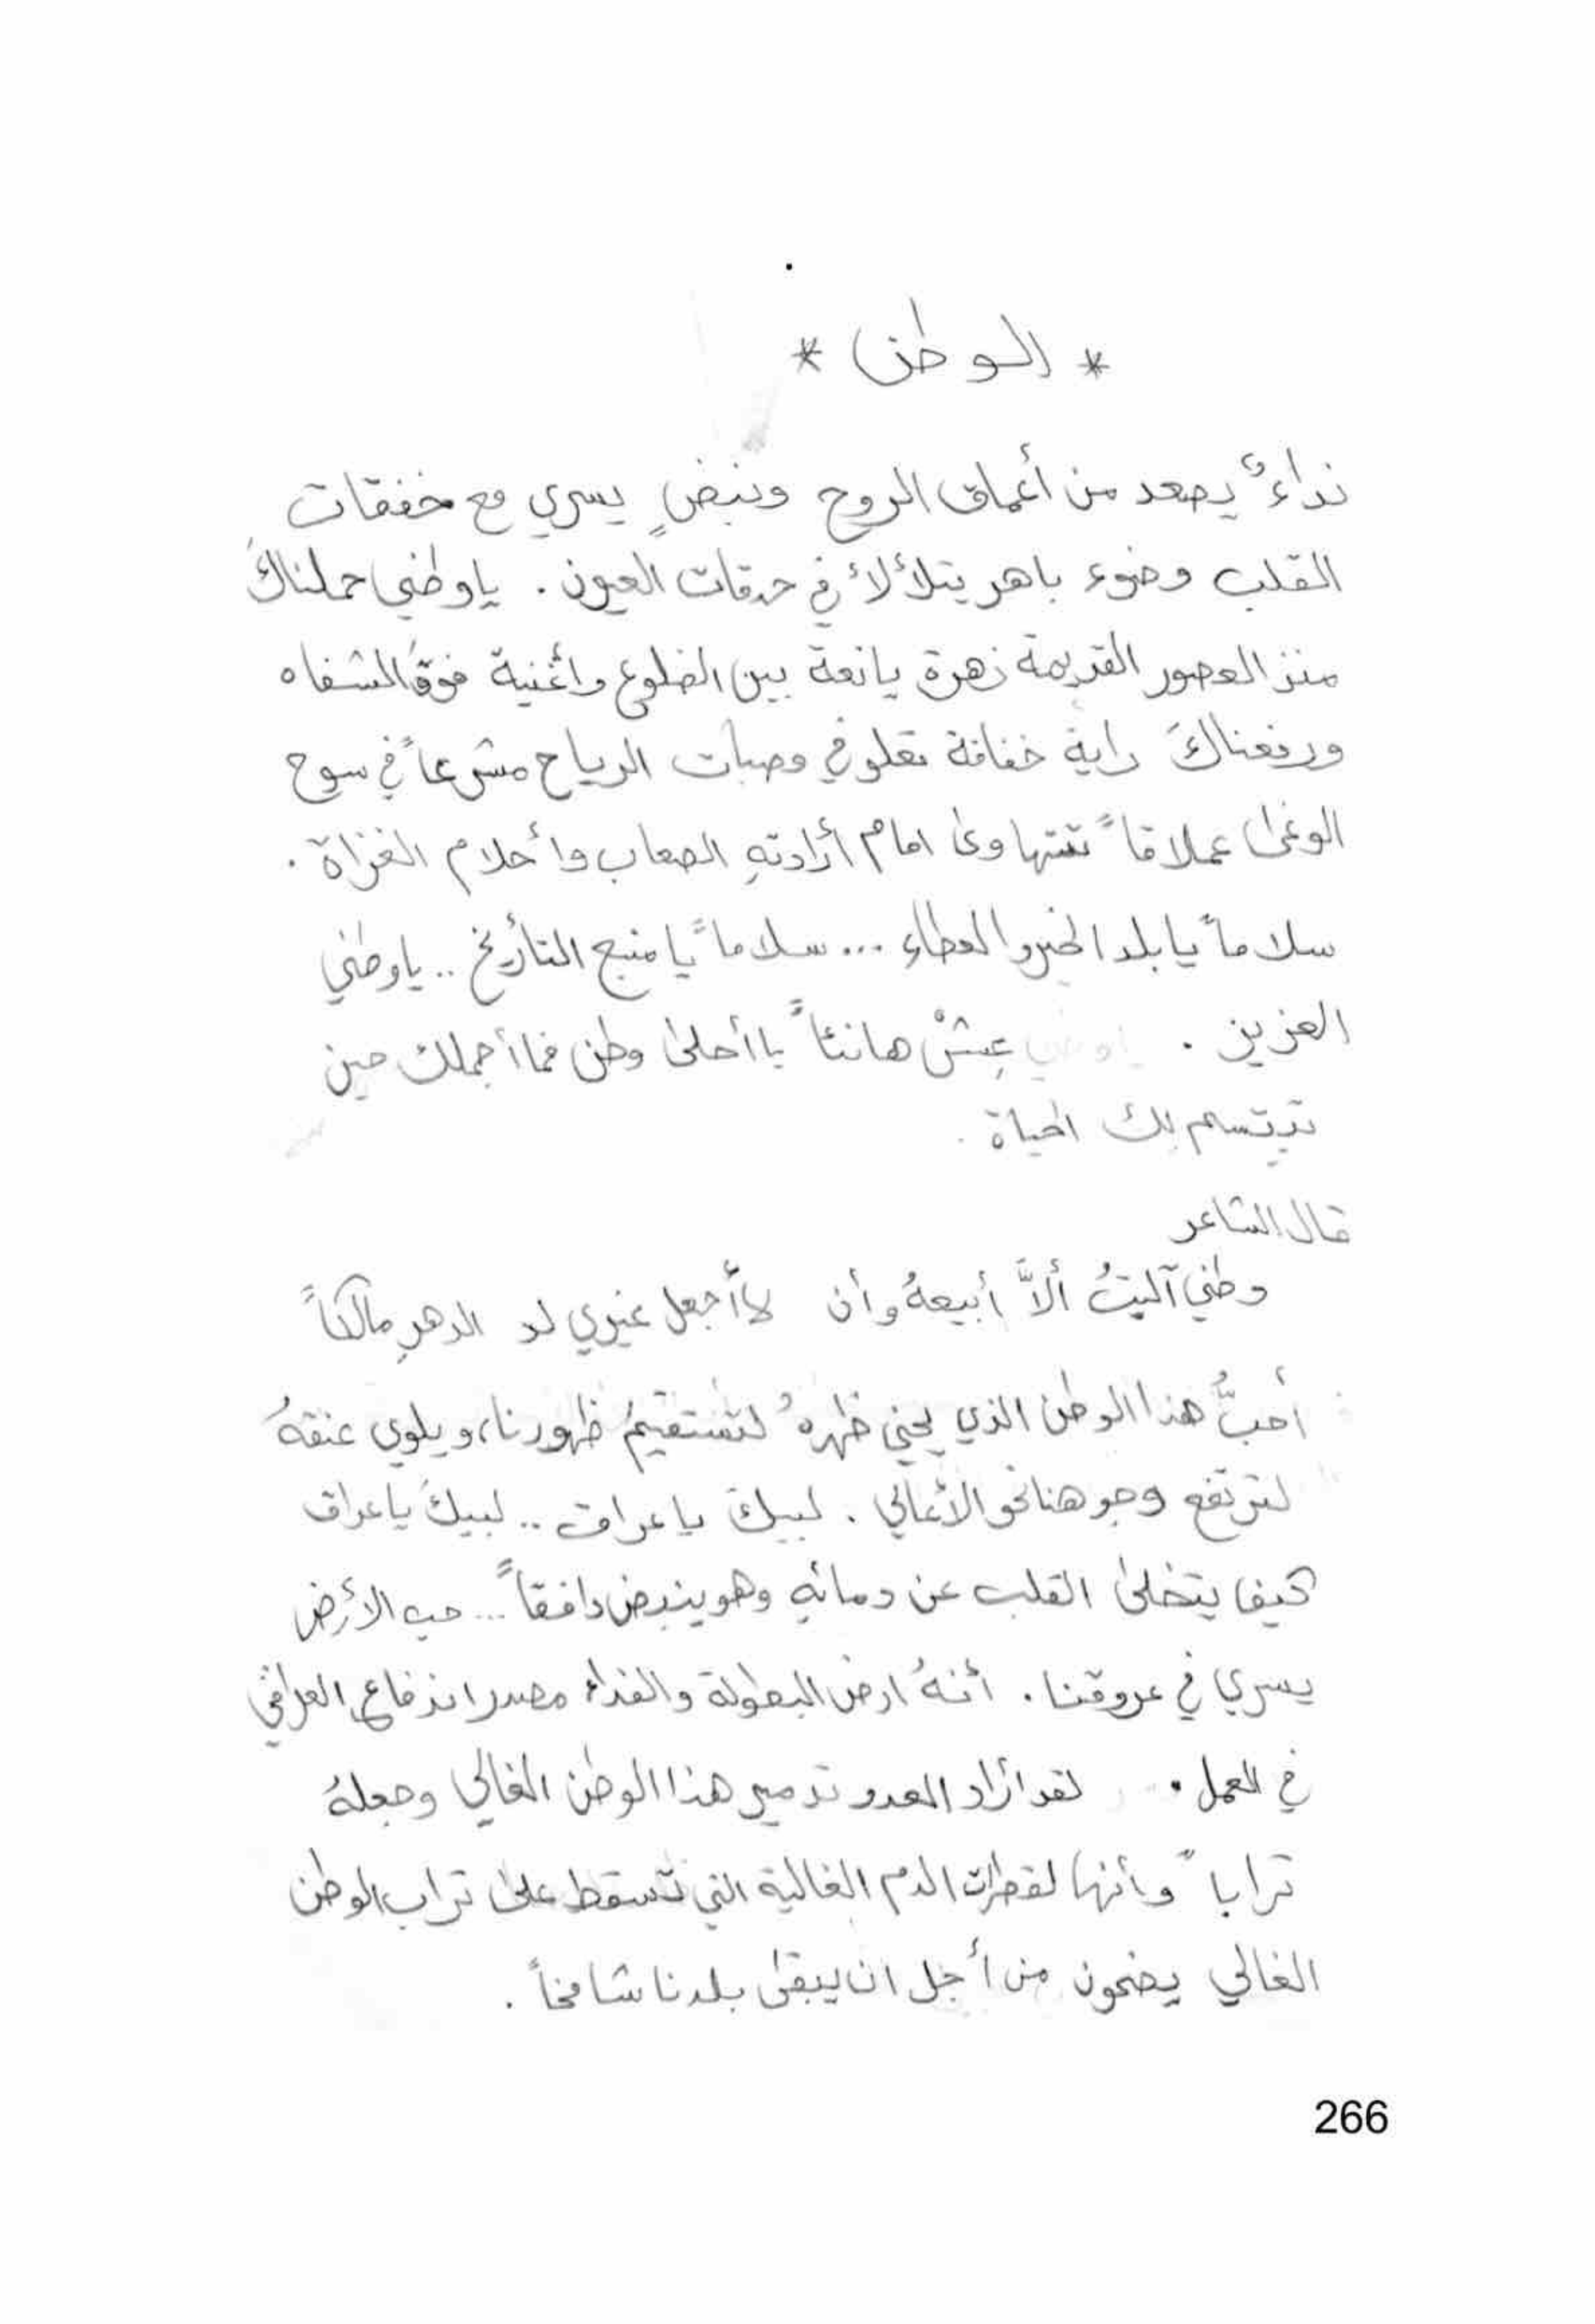 * الوطن *
نداءٌ يصعد من أعماق الروح ونبضٍ يسري مع خفقات
القلب وضوء باهر يتلألأ في حدقات العيون . ياوطني حملناكَ
منذ العصور القديمة زهرة يانعة بين الضلوع وأغنية فوقَ الشفاه
ورفعناكَ راية خفاقة تعلو في وصبات الرياح مشرعاً في سوح
الوغى عملاقاً تتهاوى امام أرادتهِ الصعاب وأحلام الغزاة .
سلاماً يا بلد الخير والعطاء ... سلاماً يا منبع التأريخ .. ياوطني
العزيز . عِشْ هانئاً يا أحلى وطن فما أجملك حين
تبتسم بك الحياة .
قال الشاعر
وطني آليتُ ألاَّ أبيعهُ وأن لا أجعل غيري لد الدهرِ مالكاً
أحبُّ هذا الوطن الذي يحني ظهرهُ لتستقيمُ ظهورنا، ويلوي عنقهُ
لترتفع وجوهنا نحو الأعالي . لبيكَ ياعراق .. لبيكَ ياعراق
كيف يتخلى القلب عن دمائهِ وهو ينبض دافقاً ... حب الأرض
يسري في عروقنا . أنهُ ارض البطولة والفداء مصدر اندفاع العراقي
في العمل . لقد أراد العدو تدمير هذا الوطن الغالي وجعلهُ
تراباً وأنها لقطرات الدم الغالية التي تسقط على تراب الوطن
الغالي يضحون من أجل ان يبقى بلدنا شامخاً .
266